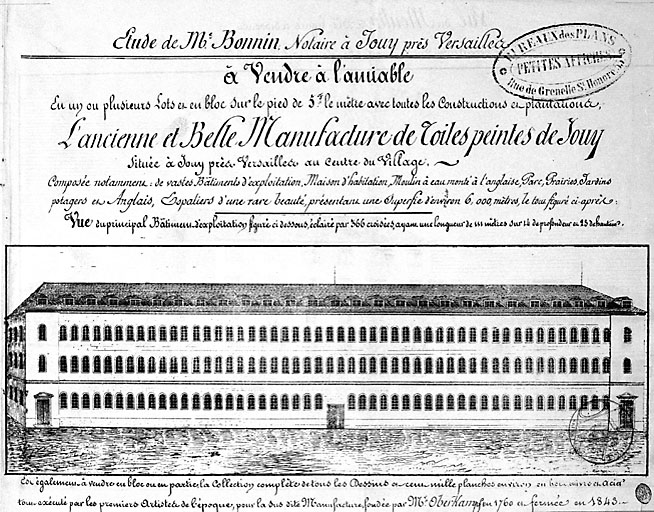 Etude de Mr. Bonnin, Notaire à Jouy près Versailles
BUREAUX des PLANS
PETITES AFFICHES
Rue de Grenelle St. Honoré
à Vendre à l'amiable
En un ou plusieurs Lots et en bloc sur le pied de 5f. le mètre avec toutes les Constructions et plantations,
L'ancienne et Belle Manufacture de Toiles peintes de Jouy
Située à Jouy près Versailles au Centre du Village.
Composée notamment: de vastes Bâtiments d'exploitation, Maison d'habitation, Moulin à eau monté à l'anglaise, Parc, Prairies, Jardins
potagers et Anglais, Espaliers d'une rare beauté, présentant une Superficie d'environ 6,000 mètres, le tout figuré ci-après:
Vue du principal Bâtiment d'exploitation figuré ci dessous, éclairé par 366 croisées, ayant une longueur de 111 mètres sur 14 de profondeur et 15 de hauteur.
Est également à vendre en bloc ou en partie, la Collection complète de tous les Dessins et cent mille planches environ en
tout exécuté par les premiers Artistes de l'époque, pour la dus dite Manufacture, fondée par Mr. Oberkampf en 1760 et fermée en 1843.